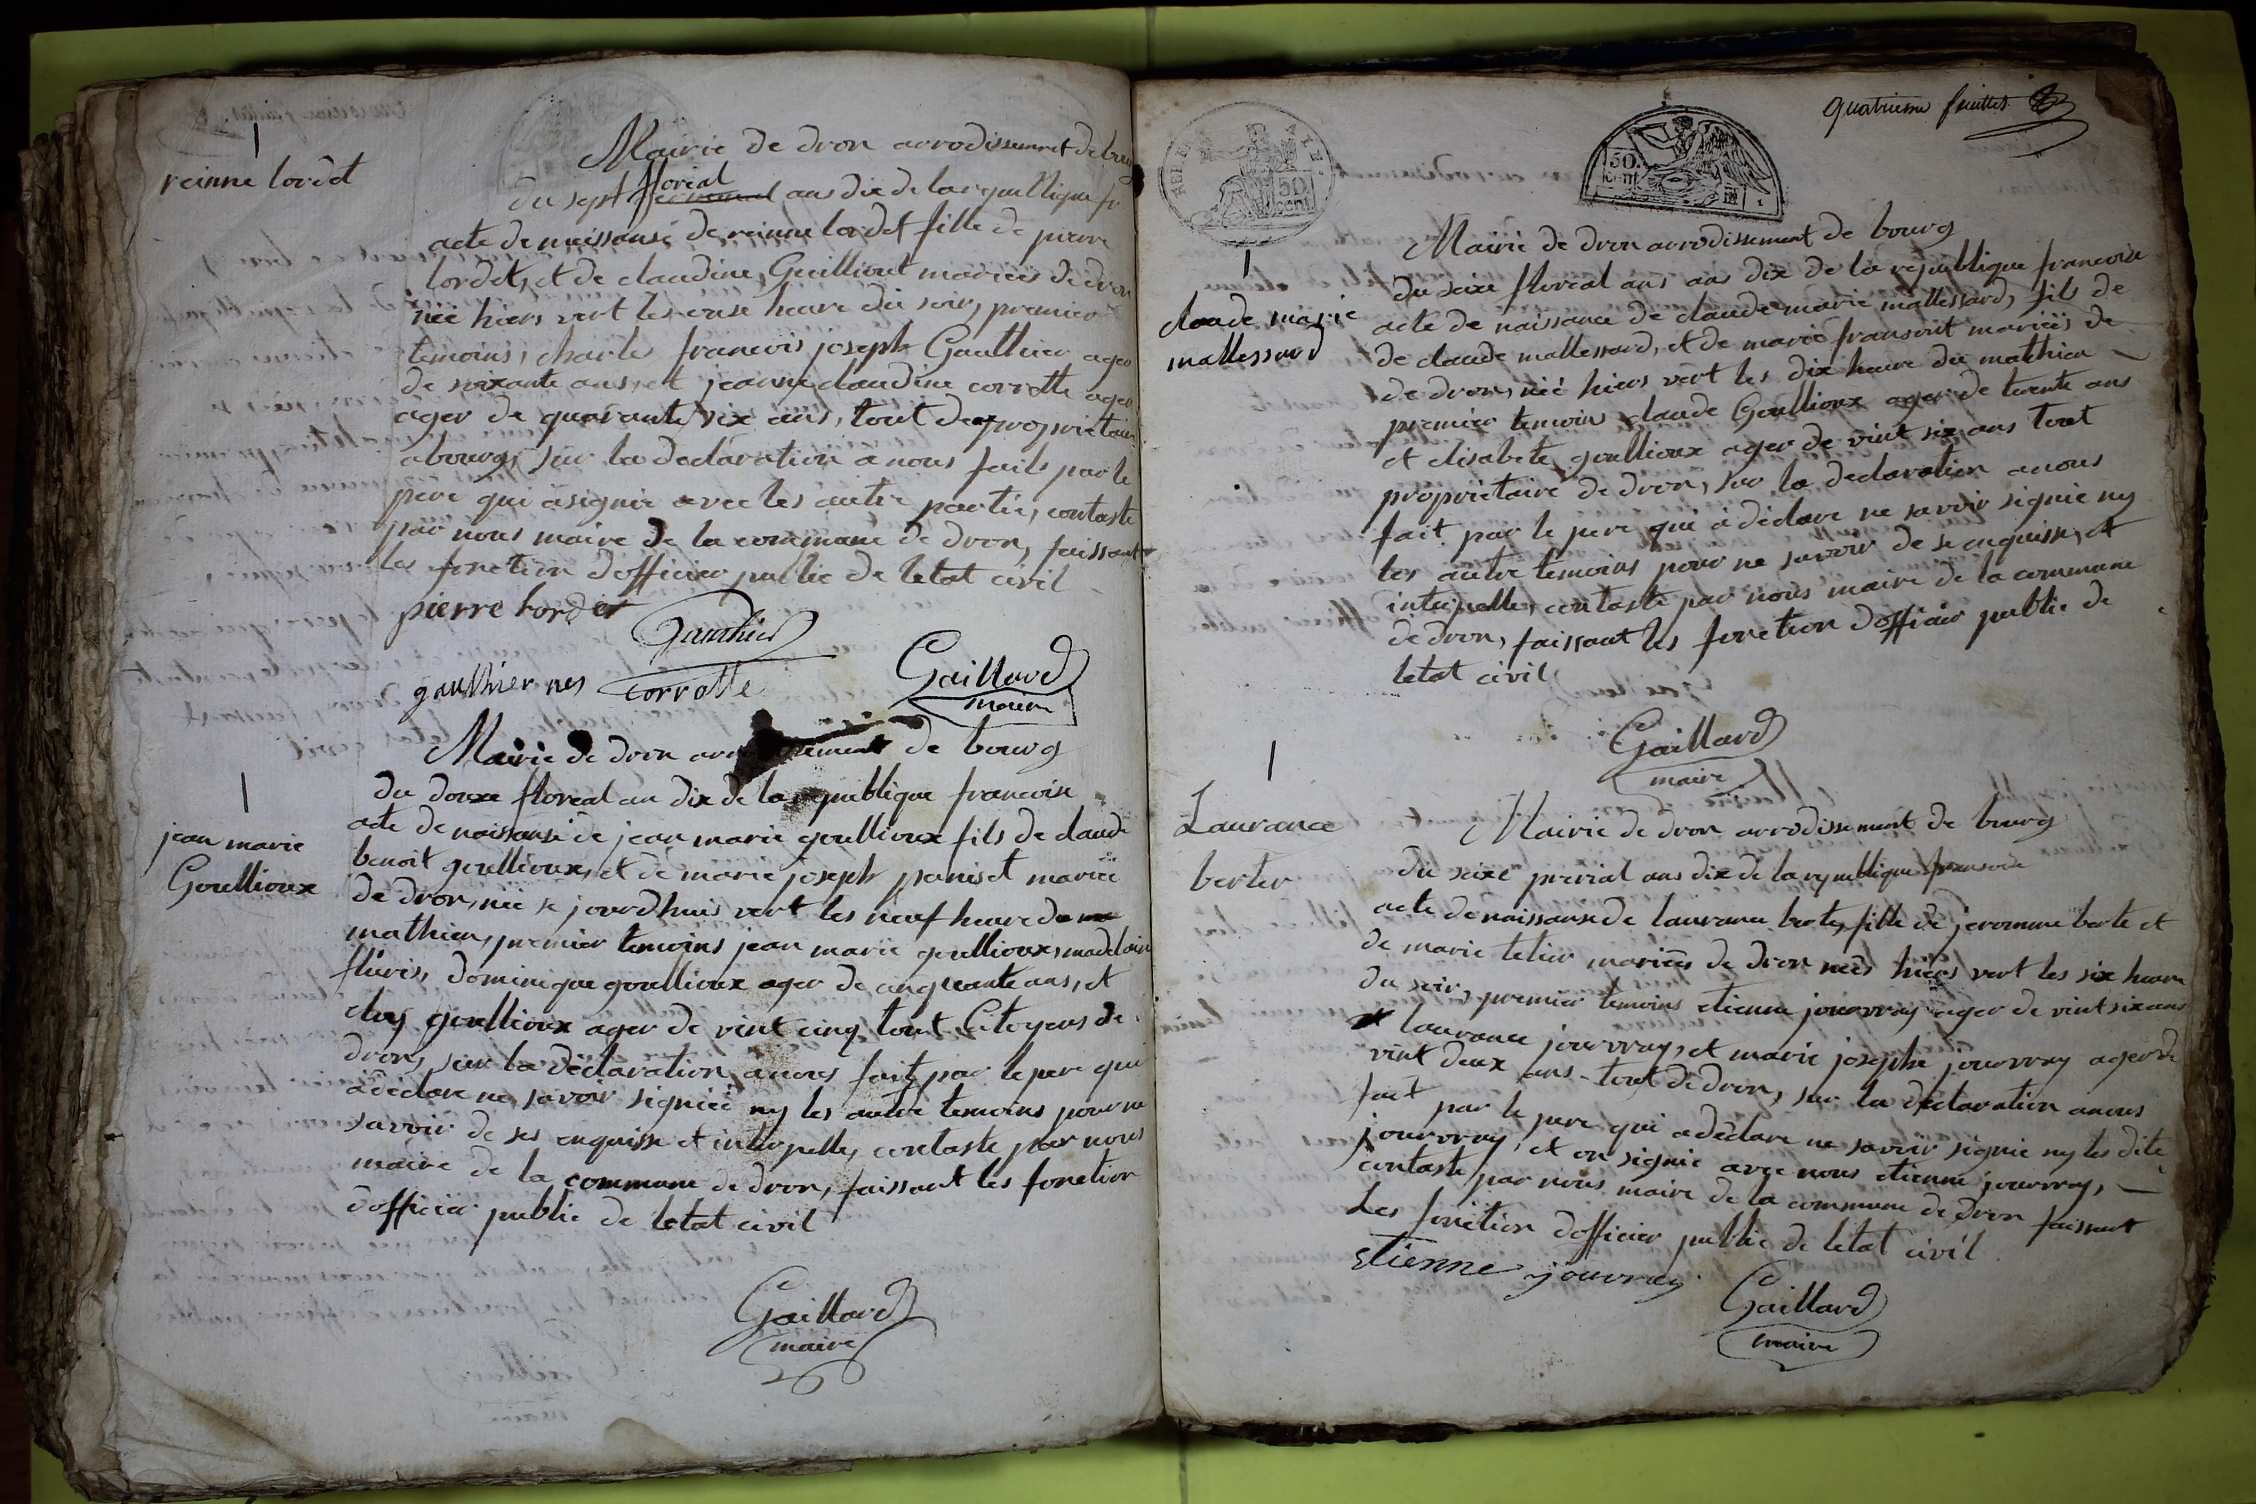 reinne lordet
Mairie de dron arrodissement de bourg
du sept floreal ans dix de la republique fr
acte de naissansé de reinne lordet fille de pierre
lordet, et de claudine Guilliout mariées de dron
néé hiers vert les onse heure du soir, premier
temoins, charles francois joseph Gaulthier ager
de soixante ans, et jeanne claudine corrotte ager
ager de quarante six ans, tout de proprietaire
abourg, sur la declaration a nous faits par le
pere qui a signie avec les autre partie, contaste
par nous maire de la commune de dron, faissant
les fonction dofficier public de letat civil
pierre lordet
Gauthier
gaulthier nes corrotte
Gaillard
maire
jean marie
Goullioux
Mairie de dron de bourg
du douxe floreal an dix de la republique francoise
acte de naissansé de jean marie goullioux fils de claude
benoit goullioux, et de marie joseph paniset mariéé
de dron, néé se jourdhuis vert les neuf heure du
mathien, premier temoins jean marie goullioux, madelaine
fléuris, dominique goullioux ager de cinquante ans, et
goullioux ager de vint cinq tout Citoyens de
dron, sur la déclaration anous fait par le pere qui
a déclare ne savoir signiéé ny les autre temoins pour ne
savoir de ses enquisse et interpelle, contaste par nous
maire de la commune de dron, faissant les fonction
dofficier public de letat civil
Gaillard
maire
quatrieme feuillet
50 cent
50. cent
claude marie
mallessard
Mairie de dron arrodissement de bourg
du seixe floreal ans ans dix de la republique francoise
acte de naissance de claude marie mallessard, fils de
de claude mallessard, et de marie fransoit mariéés de
de dron, néé hiers vert les dix heure du matthien
premier temoins claude Goullioux ager de trente ans
et elisabete goullioux ager de vint six ans tout
proprietaire de dron, sur la declaration anous
fait par le pere qui à déclare ne savoir signie ny
les autre temoins pour ne savoir de se enquisse, et
interpelle, contaste par nous maire de la commune
de dron, faissant les fonction dofficier public de
letat civil
Gaillard
maire
Laurance
berter
Mairie de dron arrodissement de bourg
du seixe prerial ans dix de la republique fransoise
acte de naissanse de laurance berte, fille de jeromme berte et
de marie telier mariéés de dron néés hiers vert les six heure
du soir, premier temoins etienne jourvray ager de vint six ans
laurance jourvray, et marie josephe jourvray ager de
vint deux ans tout de dron, sur la declaration anous
fait par le pere qui a déclare ne savoir signie ny les dite
jourvray, et on signie avec nous etienne jourvray,
contaste par nous maire de la commune de dron faissant
Les fonction dofficier public de letat civil
Etienne jouvray
Gaillard
maire